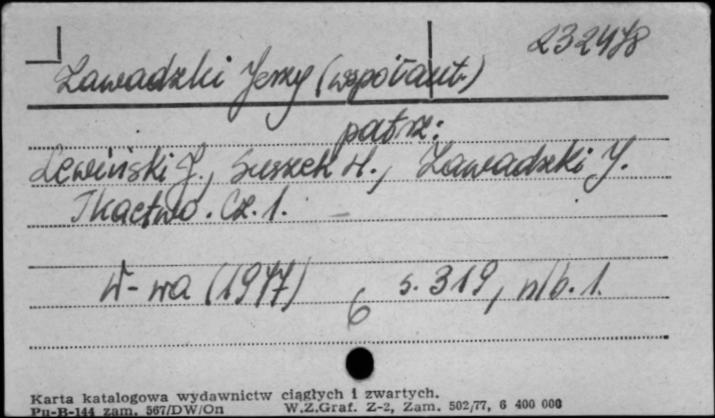 232478
Zawadzki Jerzy (współaut.)
patrz:
Lewiński J., Suszek H., Zawadzki J.
Tkactwo. Cz. 1.
W-wa (1977) s. 319, nlb. 1.
6
Karta katalogowa wydawnictw ciągłych i zwartych.
Pu-B-144 zam. 567/DW/On W.Z.Graf. Z-2, Zam. 502/77, 6 400 000